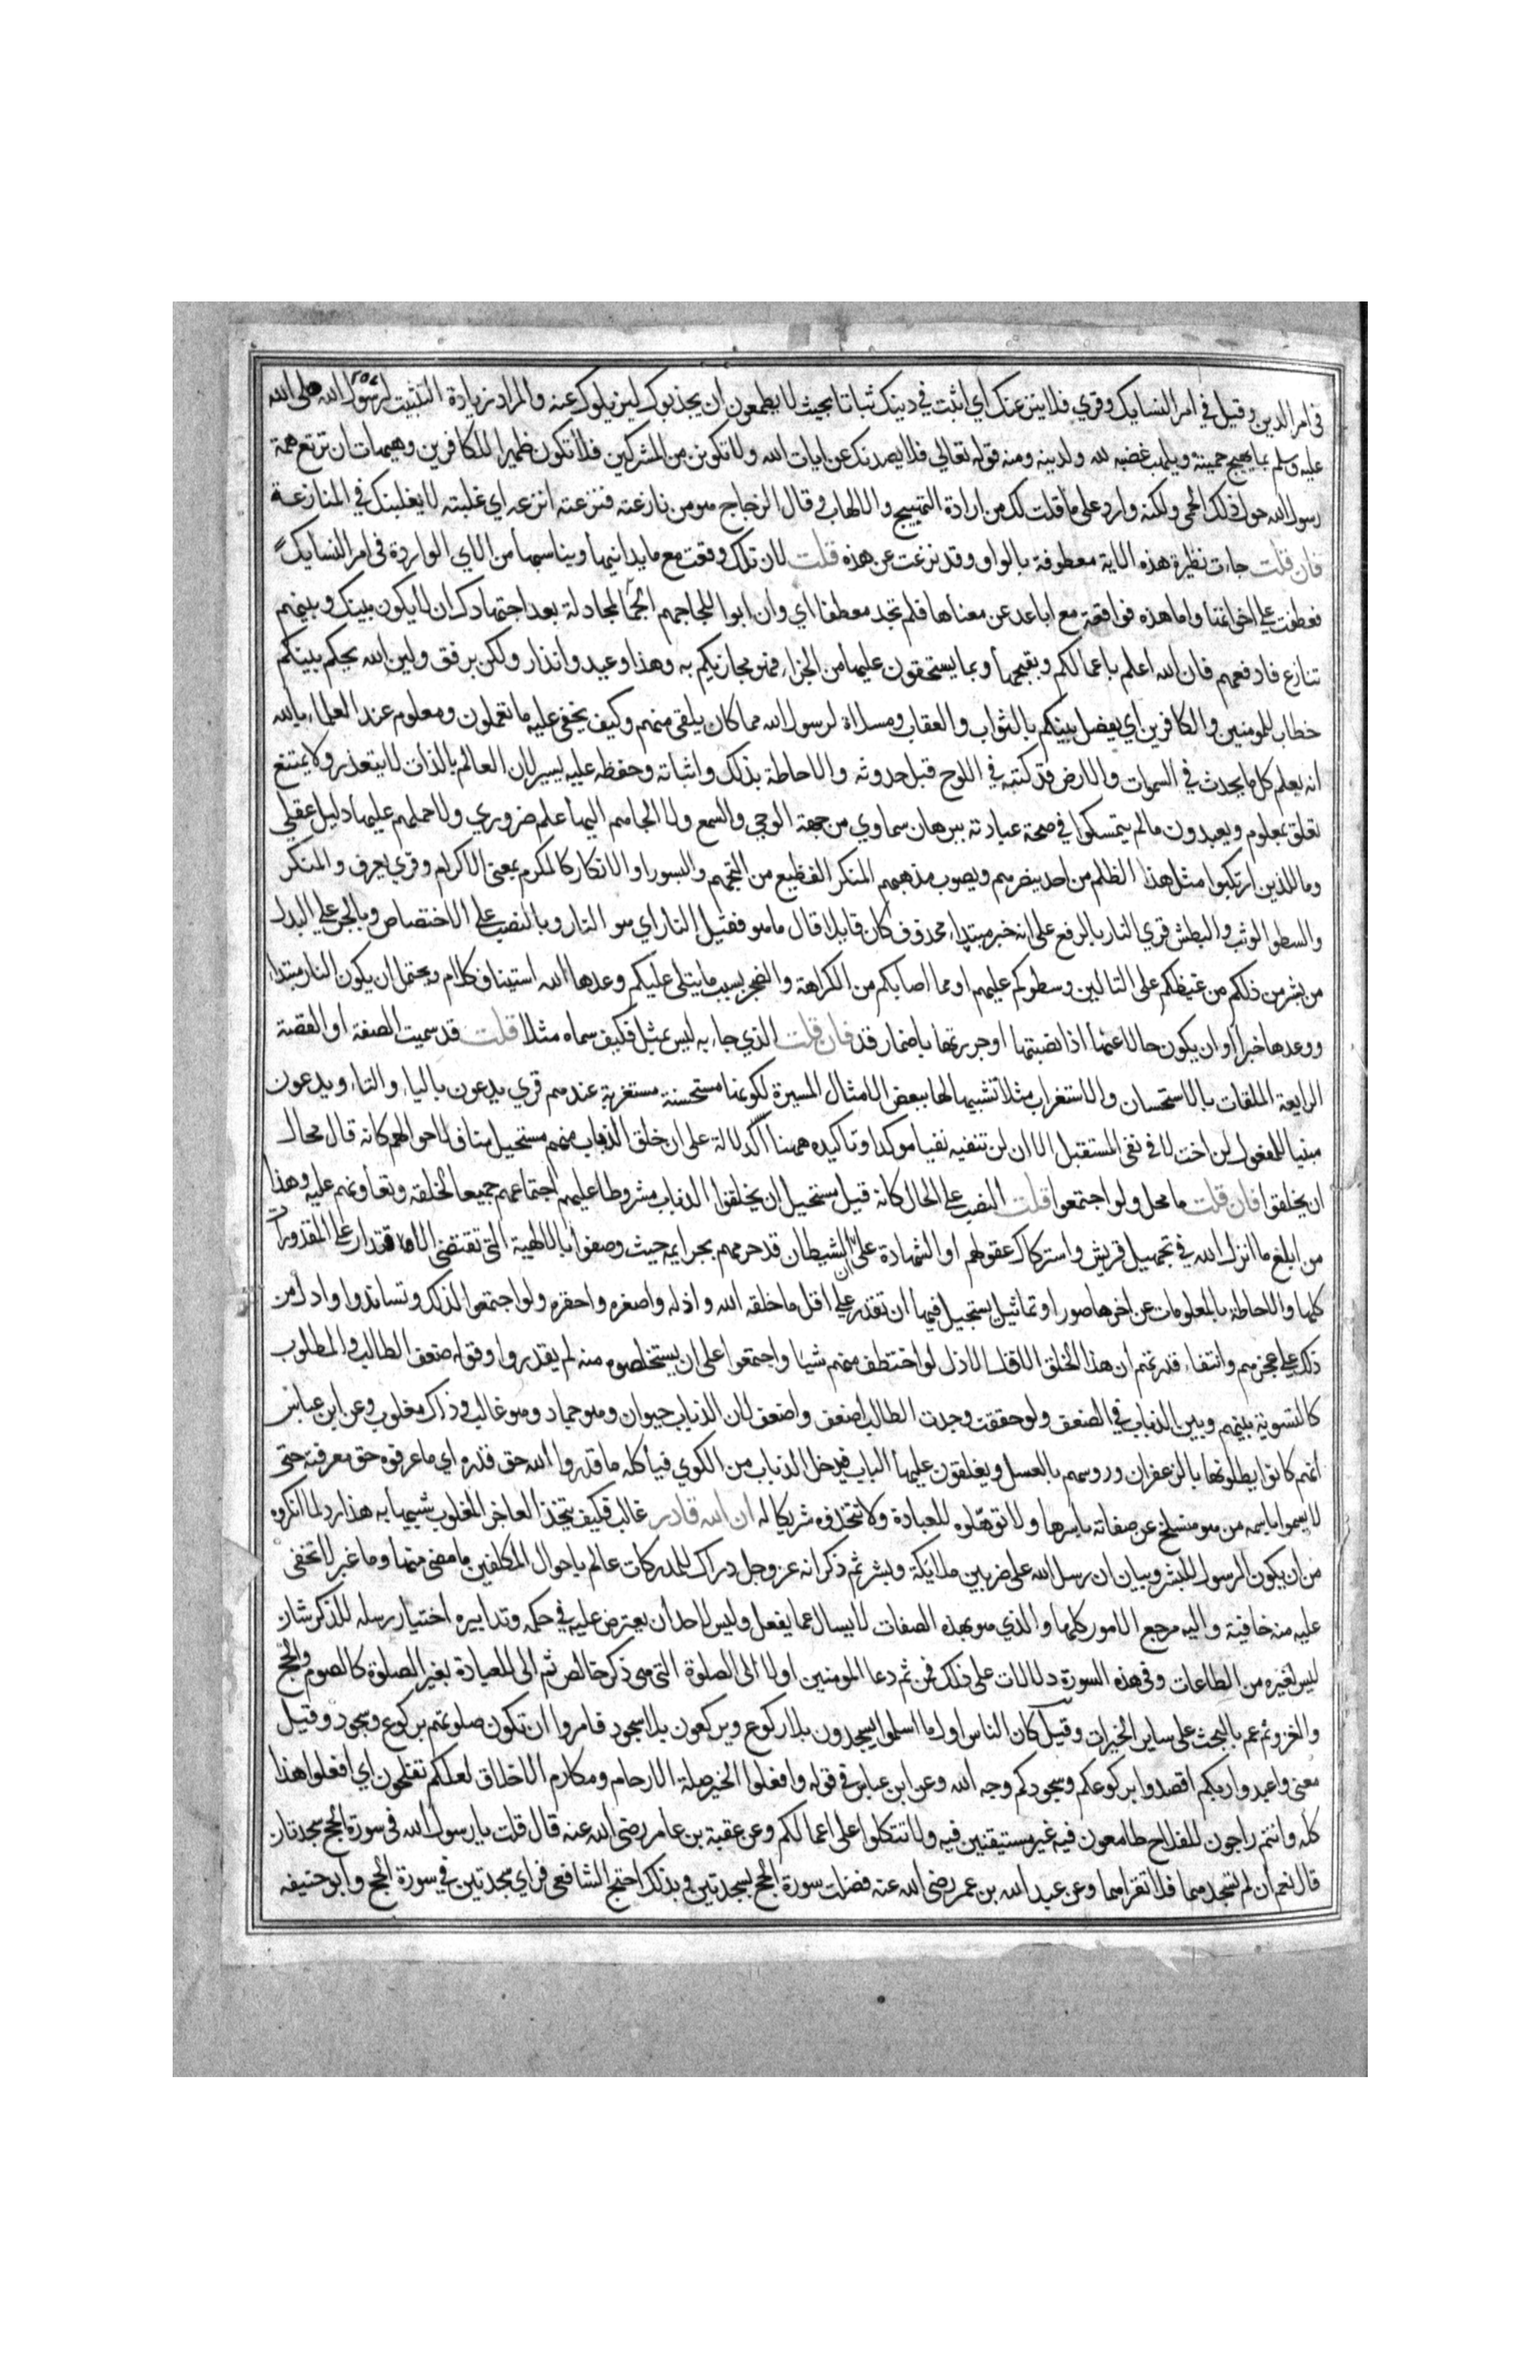 في امر الدين وقيل في امر النسايك وقري فلا ينزعنك اي اثبت في دينك ثباتا بحيث لا يطمعون ان يجذبوك ليزيلوك عنه والمراد زيادة التثبيت لرسول الله صلى الله
عليه وسلم بما يهيج حميته ويلهب غضبه لله ولدينه ومنه قوله تعالي فلا يصدنك عن ايات الله ولا تكونن من المشركين فلا تكون ظهيرا للكافرين وهيهات ان ترتع همة
رسول الله حول ذلك الحمى ولكنه وارد على ما قلت لك من ارادة التهييج والالهاب وقال الزجاج هو من نازعته فنزعته انزعه اي غلبته لا يغلبنك في المنازعة
فان قلت جاءت نظيرة هذه الاية معطوفة بالواو وقد نزعت عن هذه قلت لان تلك وقعت مع ما يدانيها ويناسبها من الاي الواردة في امر النسايك
فعطفت علي اخواتها واما هذه فواقعة مع اباعد عن معناها فلم تجد معطفا اي وان ابوا للجاجهم الا المجادلة بعد اجتهادك ان لا يكون بينك وبينهم
تنازع فادفعهم فان الله اعلم باعمالكم وبقبحها وبما يستحقون عليها من الجزاء فهو مجازيكم به وهذا وعيد وانذار ولكن برفق ولين الله يحكم بينكم
خطاب للمومنين والكافرين اي يفصل بينكم بالثواب والعقاب ومسلاة لرسول الله مما كان يلقى منهم وكيف يخفى عليه ما تعملون ومعلوم عند العلماء بالله
انه يعلم كل ما يحدث في السموات والارض قد كتبه في اللوح قبل حدوثه والاحاطة بذلك واثباته وحفظه عليه يسير لان العالم بالذات لا يتعذر ولا يمتنع
تعلق بمعلوم ويعبدون مالم يتمسكوا في صحة عبادته ببرهان سماوي من جهة الوحي والسمع ولا الجاهم اليها علم ضروري ولا حملهم عليها دليل عقلي
وما للذين ارتكبوا مثل هذا الظلم من احد ينصرهم ويصوب مذهبهم المنكر الفظيع من التجهم والبسور او الانكار كالمكرم بمعنى الاكرام وقري يعرف والمنكر
والسطو الوثب والبطش قري النار بالرفع على انه خبر مبتداء محذوف كان قايلا قال ما هو فقيل النار اي هو النار وبالنصب علي الاختصاص وبالجر علي البدل
من بشر من ذلكم من غيظكم على التالين وسطوكم عليهم او مما اصابكم من الكراهة والضجر بسبب ما يتلى عليكم وعدها الله استيناف كلام ويحتمل ان يكون النار مبتداء
ووعدها خبرا او ان يكون حالا عنها اذا نصبتها او جررتها باضمار قد فان قلت الذي جاء به ليس بمثل فكيف سماه مثلا قلت قد سميت الصفة او القصة
الرايعة الملقات بالاستحسان والاستغراب مثلا تشبيها لها ببعض الامثال المسيرة لكونها مستحسنة مستغربة عندهم قري يدعون بالياء والتاء ويدعون
مبنيا للمفعول لن اخت لا في نفي المستقبل الا ان لن تنفيه نفيا موكدا وتاكيده ههنا اكد لالة على ان خلق الذباب منهم مستحيل مناف لاحوالهم كانه قال محال
ان يخلقوا فان قلت ما محل ولو اجتمعوا قلت النصب علي الحال كانه قيل يستحيل ان يخلقوا الذباب مشروطا عليهم اجتماعهم جميعا لخلقه وتعاونهم عليه وهذا
من ابلغ ما انزل الله في تجهيل قريش واستركاك عقولهم او الشهادة علي ان الشيطان قد خرمهم بجرايمه حيث وصفوا بالالهية التي تقتضي الاقتدار علي المقدورات
كلها والاحاطة بالمعلومات عن اخرها صورا وتماثيل يستحيل فيها ان تقدر علي اقل ما خلقه الله واذله واصغره واحقره ولو اجتمعوا لذلك وتساندوا وادل من
ذلك علي عجزهم وانتفاء قدرتهم ان هذا الخلق الاقل الاذل لو اختطف منهم شيا واجتمعوا على ان يستخلصوه منه لم يقدروا وقوله ضعف الطالب والمطلوب
كالتسوية بينهم وبين الذباب في الضعف ولو حققت وجدت الطالب اضعف واضعف لان الذباب حيوان وهو جماد وهو غالب وذاك مغلوب وعن ابن عباس
انهم كانوا يطلونها بالزعفران وروسهم بالعسل ويغلقون عليها الباب فيدخل الذباب من الكوي فيأكله ما قدروا الله حق قدره اي ما عرفوه حق معرفته حتى
لا يسموا باسمه من هو منسلخ عن صفاته باسرها ولا توهّلوه للعبادة ولا تتخذوه شريكا له ان الله قادر غالب فكيف يتخذ العاجز المغلوب شبيها به هذا رد لما انكروه
من ان يكون الرسول للبشر وبيان ان رسل الله على ضربين ملايكة وبشر ثم ذكر انه عز وجل دراك للمدركات عالم باحوال المكلفين ما مضى منها وما غبر لا تخفى
عليه منه خافية واليه مرجع الامور كلها والذي هو بهذه الصفات لا يسال عما يفعل وليس لاحد ان يعترض عليه في حكمه وتدابيره اختيار رسله للذكر شان
ليس لغيره من الطاعات وفي هذه السورة دلالات على ذلك فمن ثم دعا المومنين اولا الى الصلوة التي هي ذكر خالص ثم الى العبادة بغير الصلوة كالصوم والحج
والغزو ثم عم بالحث على ساير الخيرات وقيل كان الناس اول ما اسلموا يسجدون بلا ركوع ويركعون بلا سجود فامروا ان تكون صلوتهم بركوع وسجود وقيل
معنى واعبدوا ربكم اقصدوا بركوعكم وسجودكم وجه الله وعن ابن عباس في قوله وافعلوا الخير صلة الارحام ومكارم الاخلاق لعلكم تفلحون اي افعلوا هذا
كله وانتم راجون للفلاح طامعون فيه غير مستيقنين فيه ولا تتكلوا على اعمالكم وعن عقبة بن عامر رضى الله عنه قال قلت يا رسول الله في سورة الحج سجدتان
قال نعم ان لم تسجدهما فلا تقراهما وعن عبد الله بن عمر رضى الله عنه فضلت سورة الحج بسجدتين وبذلك احتج الشافعي فراي سجدتين في سورة الحج وابو حنيفه